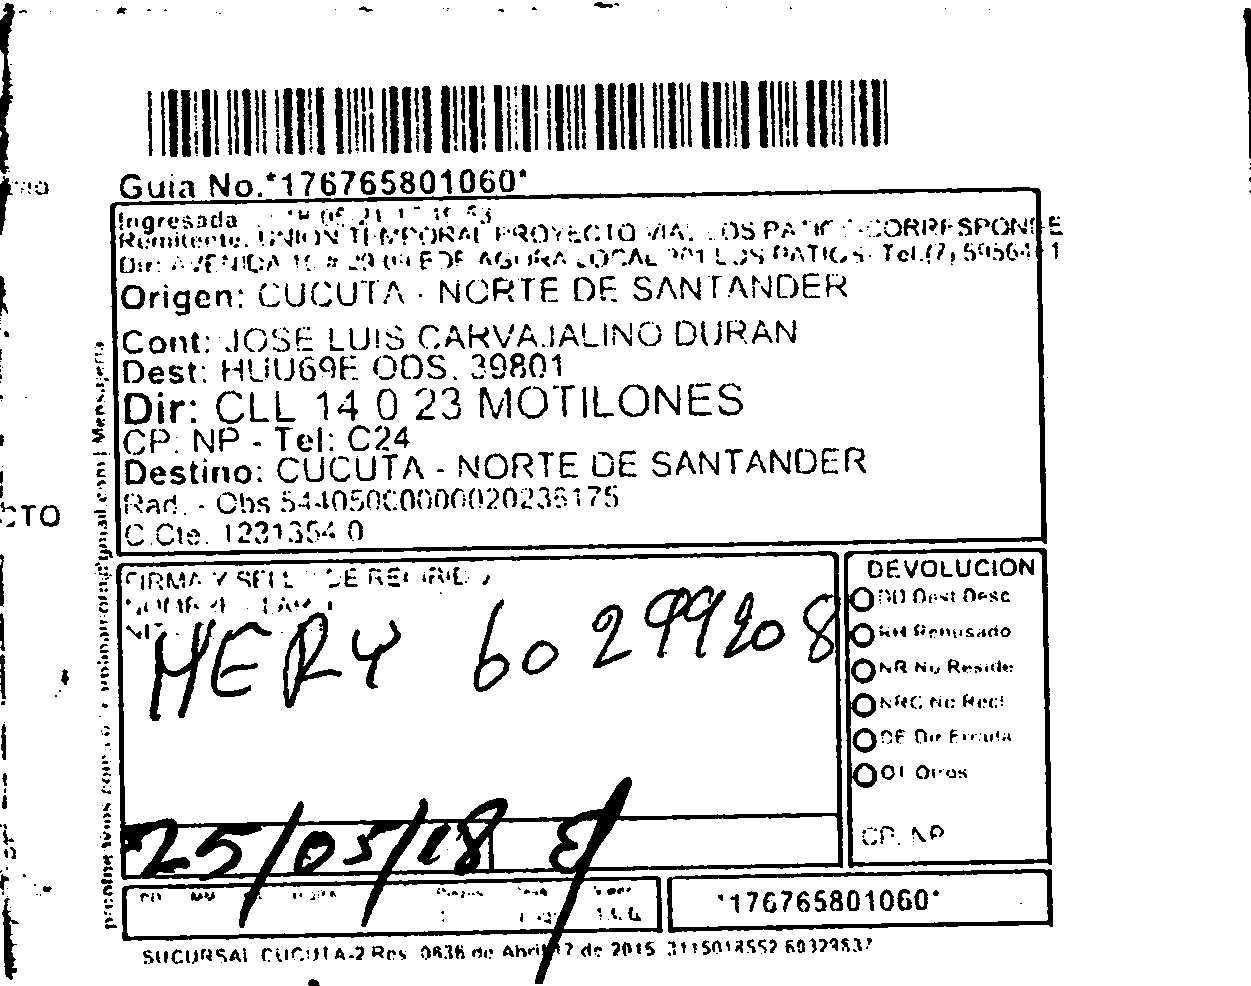 Guia No.*176765801060*
Ingresada
Remitente. UNION TEMPORAL PROYECTO VIAL LOS PATIOS-CORRESPONDE
Dir: AVENIDA 10 # EDF AGORA LOCAL 201 LOS PATIOS- Tel.(7)
Origen: CUCUTA - NORTE DE SANTANDER
Cont: JOSE LUIS CARVAJALINO DURAN
Dest: HUU69E ODS. 39801
Dir: CLL 14 0 23 MOTILONES
CP: NP - Tel: C24
Destino: CUCUTA - NORTE DE SANTANDER
Rad. - Obs
C.Cte. 1231354 0
CTO
FIRMA Y SELLO DE RECIBIDO
MERY 60299208
25/05/18
DEVOLUCION
DD Dest Desc
RH Rehusado
NR No Reside
NRC No Recl
DE Dir Errada
OT Otros
CP. NP
DD MM HORA
*176765801060*
SUCURSAL CUCUTA-2 Res 0636 de Abril 17 de 2015